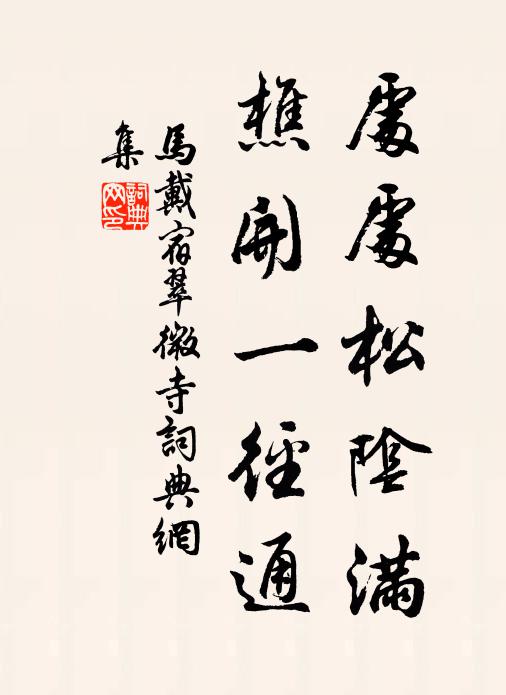 處處松陰滿
樵開一徑通
馬戴宿翠微寺詞典網
集
詞典
网印